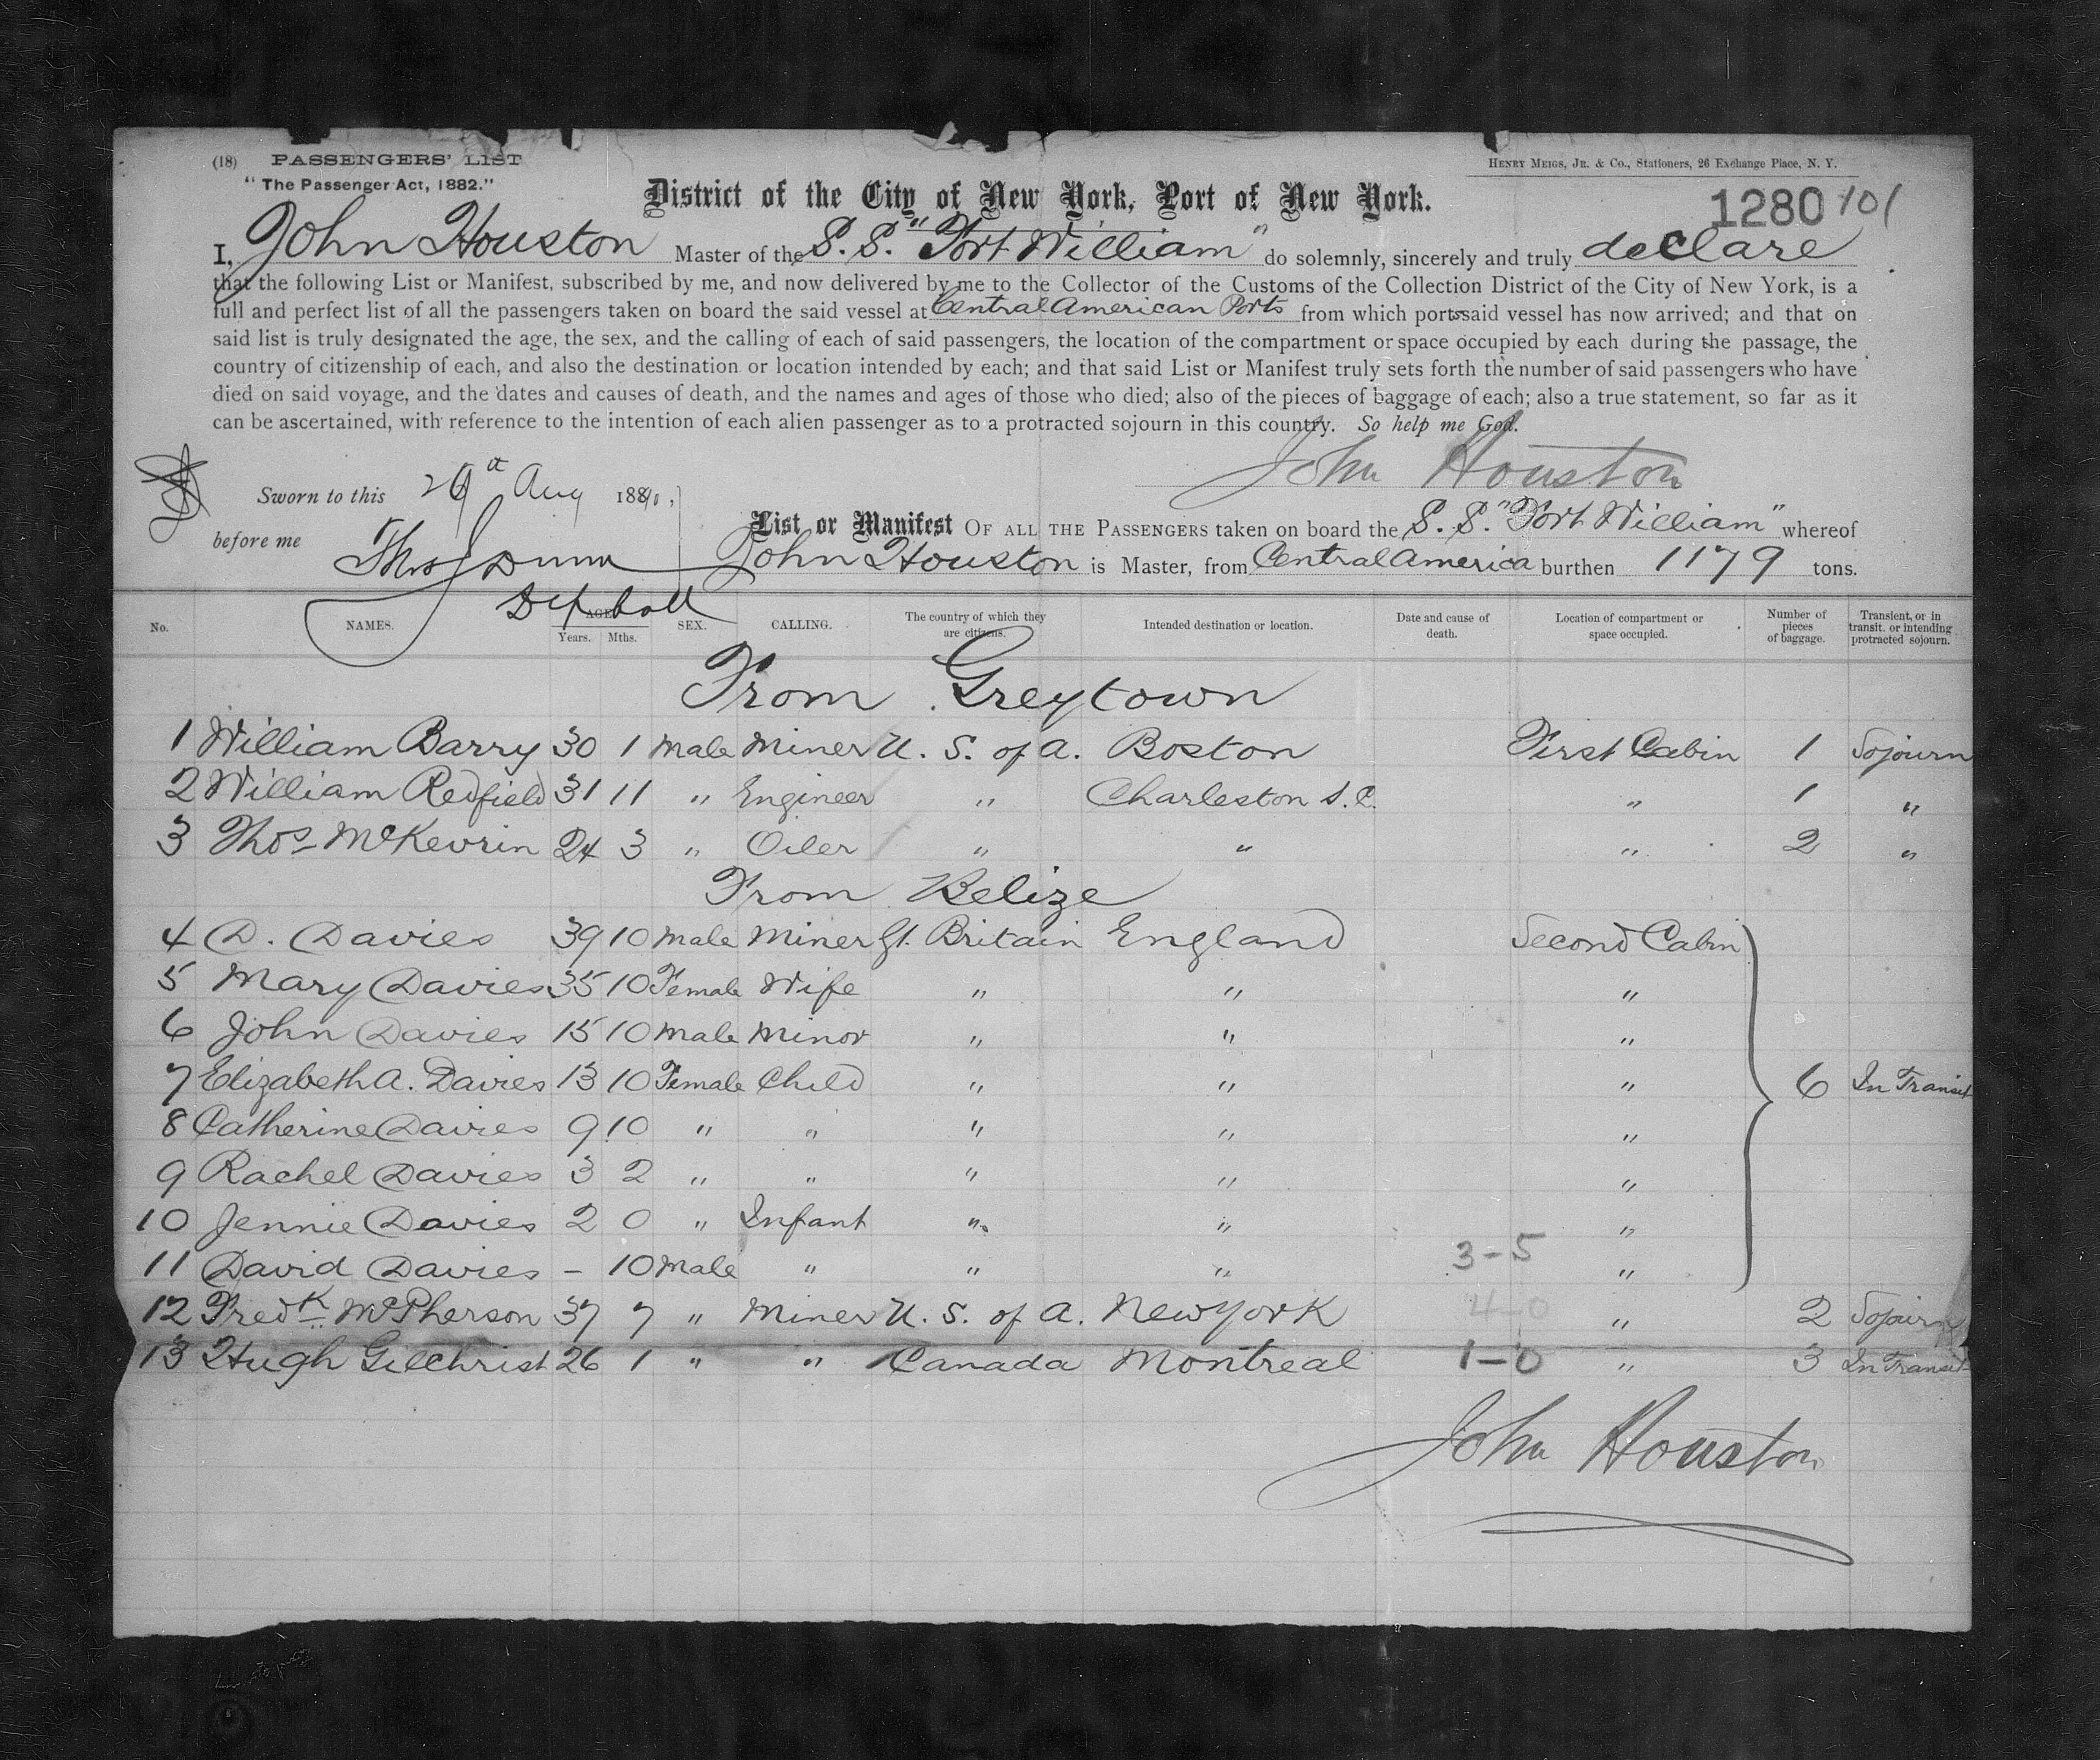 (18) PASSENGERS' LIST
HENRY MEIGS, JR. & CO., Stationers, 26 Exchange Place, N. Y.
"The Passenger Act, 1882."
District of the City of New York, Port of New York.
1280 101
I, John Houston Master of the S. S. "Fort William" do solemnly, sincerely and truly declare
that the following List or Manifest, subscribed by me, and now delivered by me to the Collector of the Customs of the Collection District of the City of New York, is a
full and perfect list of all the passengers taken on board the said vessel at Central American Ports from which ports said vessel has now arrived; and that on
said list is truly designated the age, the sex, and the calling of each of said passengers, the location of the compartment or space occupied by each during the passage, the
country of citizenship of each, and also the destination or location intended by each; and that said List or Manifest truly sets forth the number of said passengers who have
died on said voyage, and the dates and causes of death, and the names and ages of those who died; also of the pieces of baggage of each; also a true statement, so far as it
can be ascertained, with reference to the intention of each alien passenger as to a protracted sojourn in this country. So help me God.
John Houston
Sworn to this Aug
before me
List or Manifest OF ALL THE PASSENGERS taken on board the S. S. "Fort William" whereof
John Houston is Master, from Central America burthen 1179 tons.
No. NAMES. AGE Years. Mths. SEX. CALLING. The country of which they are citizens. Intended destination or location. Date and cause of death. Location of compartment or space occupied. Number of pieces of baggage. Transient, or in transit, or intending protracted sojourn.
From Greytown
1 William Barry 30 1 Male Miner U. S. of A. Boston First Cabin 1 Sojourn
2 William Redfield 31 11 " Engineer " Charleston S. C. " 1 "
3 Thos McKevrin 24 3 " Oiler " " " 2 "
From Belize
4 D. Davies 39 10 Male Miner Gt. Britain England Second Cabin
5 Mary Davies 35 10 Female Wife " " "
6 John Davies 15 10 Male Minor " " "
7 Elizabeth A. Davies 13 10 Female Child " " " 6 In Transit
8 Catherine Davies 9 10 " " " " "
9 Rachel Davies 3 2 " " " " "
10 Jennie Davies 2 0 " Infant " " "
11 David Davies – 10 Male " " " 3-5 "
12 Fredk McPherson 37 7 " Miner U. S. of A. New York 4-0 " 2 Sojourn
13 Hugh Gilchrist 26 1 " " Canada Montreal 1-0 " 3 In Transit
John Houston